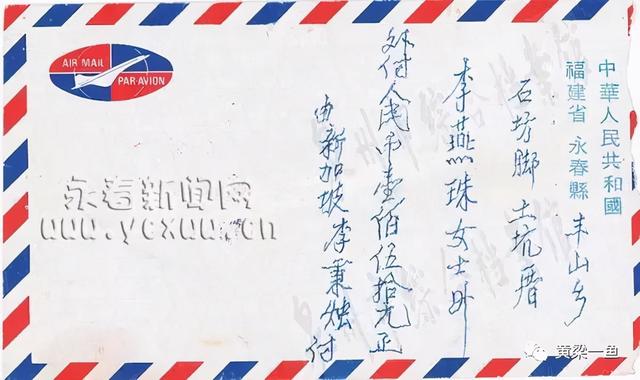 AIR MAIL
PAR AVION
中華人民共和國
福建省 永春縣 丰山乡
石坊脚 土坑厝
李燕珠女士收
外付人民币壹佰伍拾元正
由新加坡 李 付
永春新闻网
黄梁一鱼